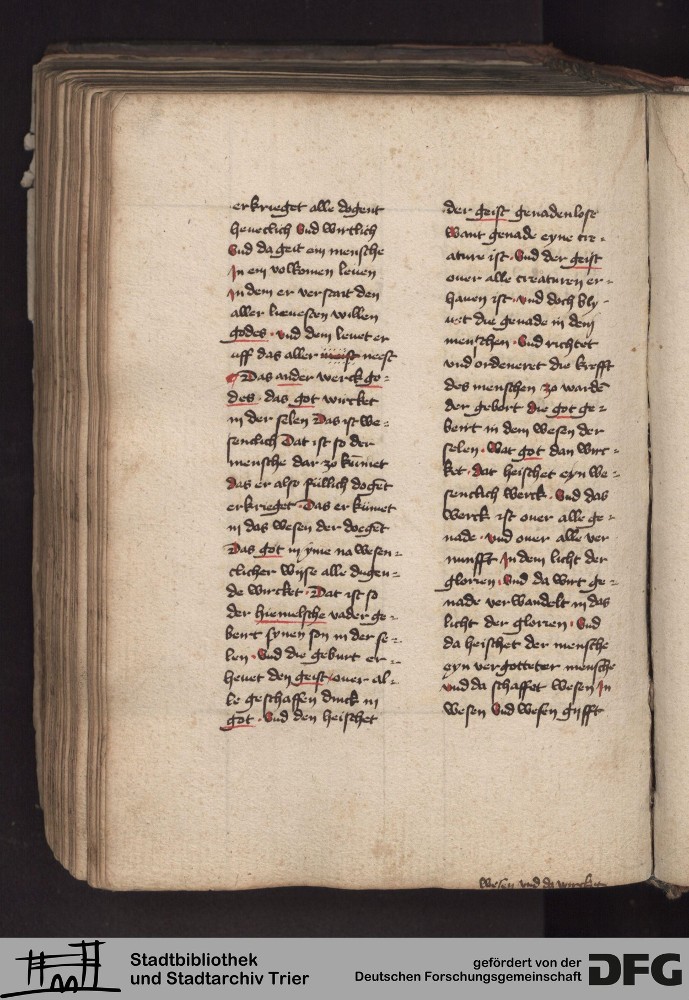 erkrieget alle dogent
heuetlich Vnd wirtlich
Vnd da geit ein mensche
In ein volkomen leuen
In dem er verstait den
aller lieuesten willen
godes · vnd dem leuet er
uff das aller neest
Das ander werck go=
des · das got wircket
in der selen Das ist we=
senclich Dat ist so der
mensche dar zo kūmet
das er also füllich dogēt
erkrieget · Das er kūmet
in das wesen der doegēt
Das got in yme na wesen=
clicher wijse alle dugen=
de wircket · Dat ist so
der hiemelsche vader ge=
beirt synen son in der se=
len · Vnd die geburt er=
heuet den geist / ouer al=
le geschaffen dinck in
got · Vnd den heischet
der geist genadenlose
Want genade eyne cre=
ature ist · Vnd der geist
ouer alle creaturen er=
hauen ist · vnd doch bly=
uet die genade in dem
menschen · Vnd richtet
vnd ordeneret die krefft
des menschen zo wardē
der gebort die got ge=
beirt in dem wesen der
selen · Wat got dan wir=
ket · dat heischet eyn we=
senclich werck · Vnd das
werck ist ouer alle ge=
nade · vnd ouer alle ver
nunfft In dem licht der
glorien · Vnd da wirt ge=
nade verwandelt in das
licht der glorien · Vnd
da heischet der mensche
eyn vergotteter mensche
vnd da schaffet wesen In
wesen Vnd wesen gijfft
wesen vnd da wircken
Stadtbibliothek
und Stadtarchiv Trier
gefördert von der
Deutschen Forschungsgemeinschaft
DFG